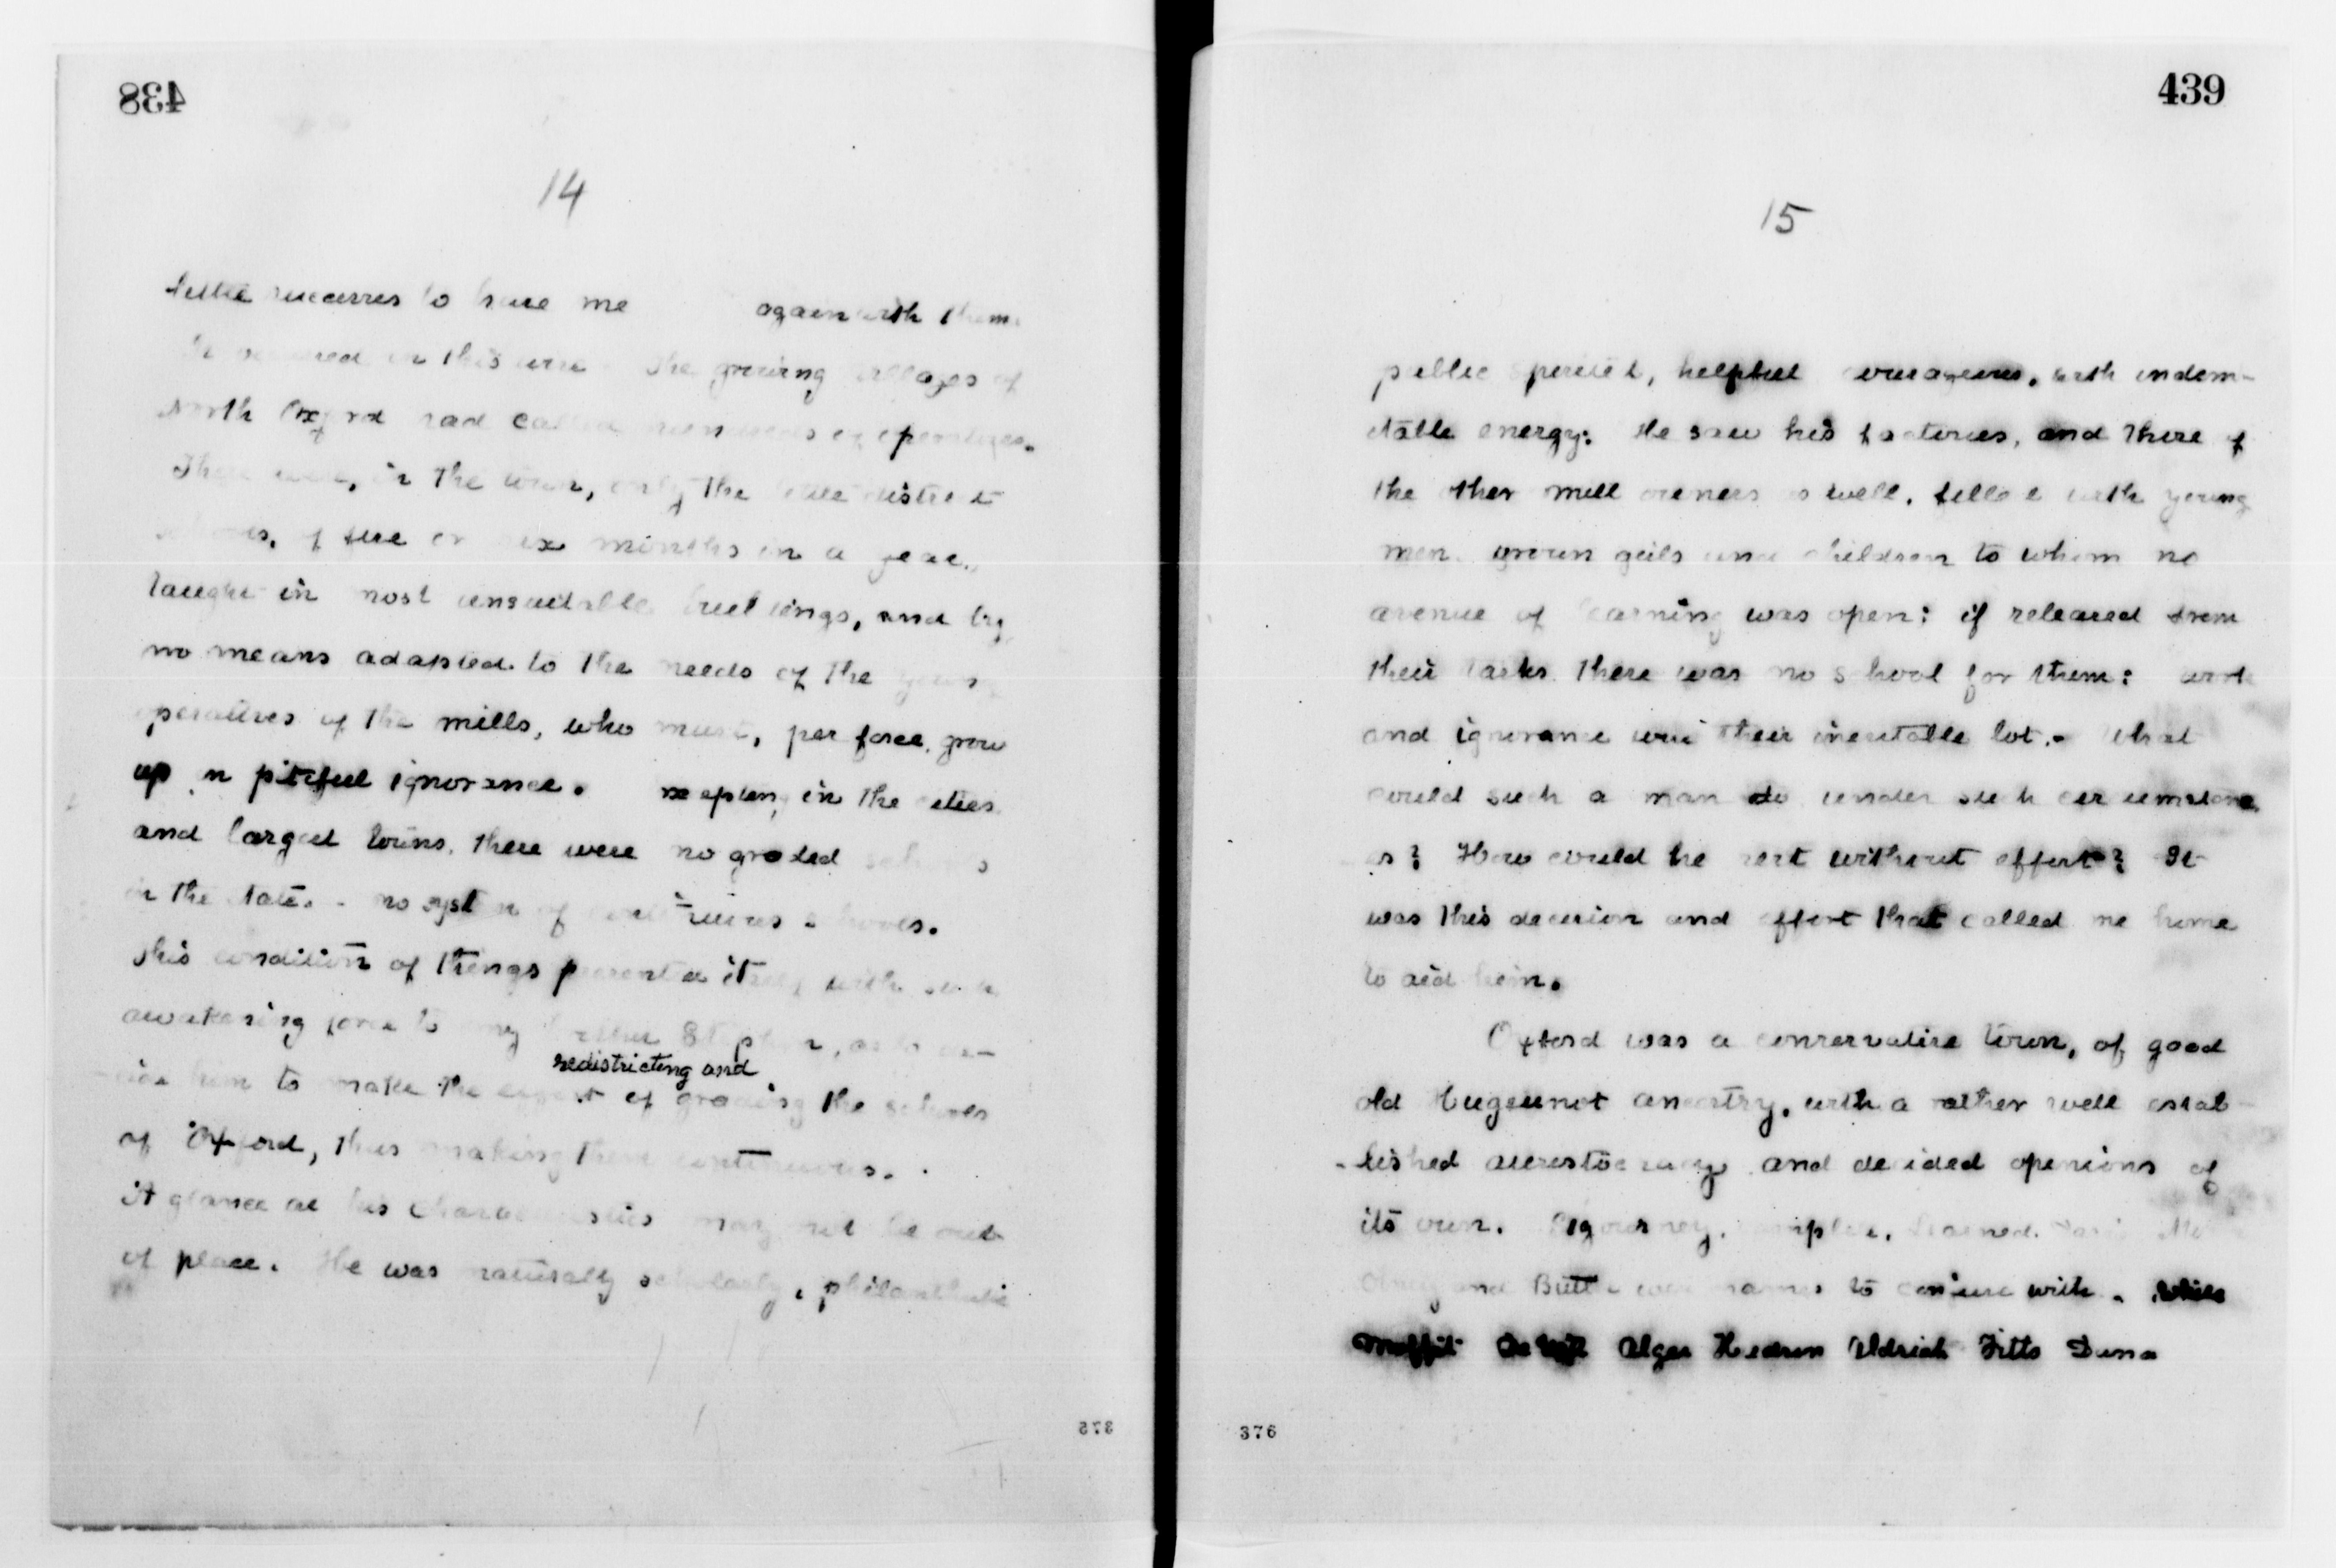 438
14
little successes to have me again with them.
It occurred in this wise. The growing villages of
North Oxford had called hundreds of operatives.
There were, in the town, only the little district
schools, of five or six months in a year,
taught in most unsuitable buildings, and by
no means adapted to the needs of the young
operatives of the mills, who must, per force, grow
up in pitiful ignorance. excepting in the cities
and largest towns, there were no graded schools
in the state. - no system of continuous schools.
This condition of things presented itself with such
awakening force to my brother Stephen, as to de-
redistricting and
cide him to make the effort of grading the schools
of Oxford, thus making them continuous.
A glance at his characteristics may not be out
of place. He was naturally scholarly, philanthropic
375
439
15
public spirited, helpful courageous, with indom-
itable energy. He saw his factories, and those of
the other mill owners as well, filled with young
men, grown girls and children to whom no
avenue of learning was open: if released from
their tasks there was no school for them: work
and ignorance were their inevitable lot. - What
could such a man do under such circumstanc
es? How could he rest without effort? It
was this decision and effort that called me home
to aid him.
Oxford was a conservative town, of good
old Hugeunot ancestry, with a rather well estab-
-lished aristocracy and decided opinions of
its own. Sigourney, Learned,
Olney and Butler were names to conjure with. While
Moffit De Witt Alger Hudson Aldrich Fitts Dana
376